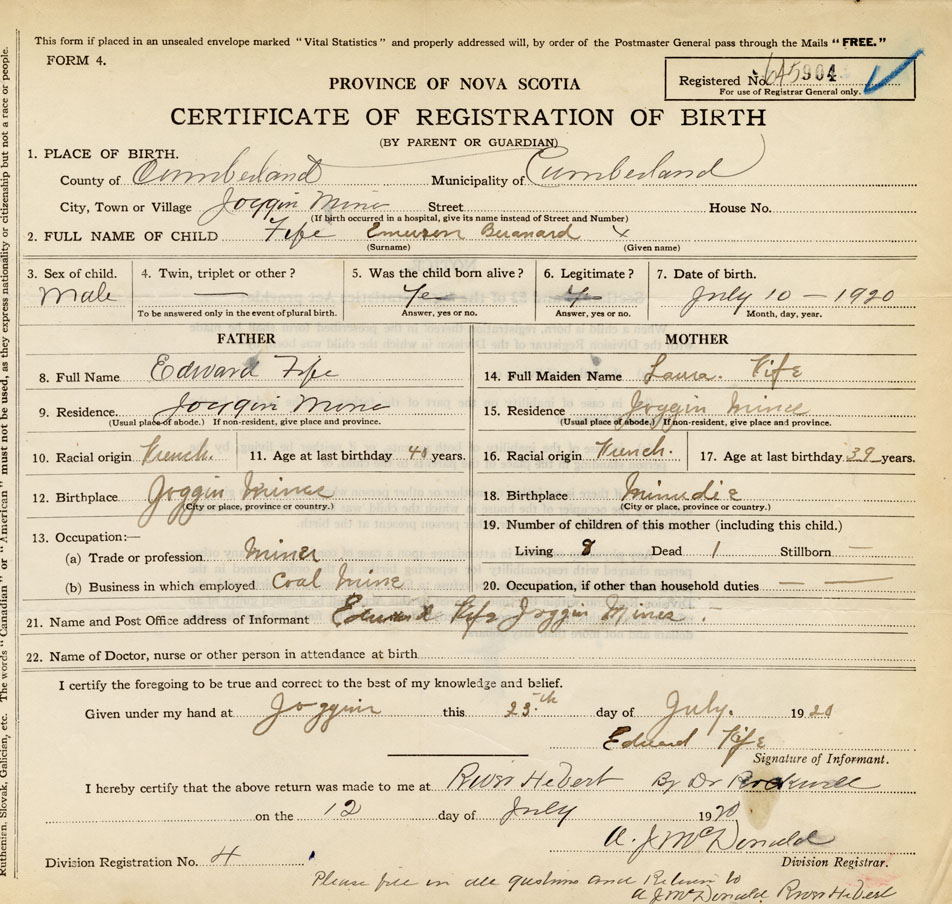 This form if placed in an unsealed envelope marked "Vital Statistics" and properly addressed will, by order of the Postmaster General pass through the Mails "FREE."
FORM 4.
Registered No. 645904
For use of Registrar General only.
PROVINCE OF NOVA SCOTIA
CERTIFICATE OF REGISTRATION OF BIRTH
(BY PARENT OR GUARDIAN)
1. PLACE OF BIRTH.
County of Cumberland Municipality of Cumberland
City, Town or Village Joggin Mine Street House No.
(If birth occurred in a hospital, give its name instead of Street and Number)
2. FULL NAME OF CHILD Fife Emerson Bernard x
(Surname) (Given name)
3. Sex of child. 4. Twin, triplet or other? 5. Was the child born alive? 6. Legitimate? 7. Date of birth.
Male — Yes Yes July 10 - 1920
To be answered only in the event of plural birth. Answer, yes or no. Answer, yes or no. Month, day, year.
FATHER
8. Full Name Edward Fife
9. Residence. Joggin Mine
(Usual place of abode.) If non-resident, give place and province.
10. Racial origin French. 11. Age at last birthday 40 years.
12. Birthplace Joggin Mines
(City or place, province or country.)
13. Occupation:—
(a) Trade or profession Miner
(b) Business in which employed Coal Mine
MOTHER
14. Full Maiden Name Laura. Fife
15. Residence Joggin Mines
(Usual place of abode.) If non-resident, give place and province.
16. Racial origin French. 17. Age at last birthday 39 years.
18. Birthplace Minudie
(City or place, province or country.)
19. Number of children of this mother (including this child.)
Living 8 Dead 1 Stillborn —
20. Occupation, if other than household duties —
21. Name and Post Office address of Informant Edward Fife Joggin Mines.
22. Name of Doctor, nurse or other person in attendance at birth
I certify the foregoing to be true and correct to the best of my knowledge and belief.
Given under my hand at Joggin this 23th day of July. 1920
Edward Fife
Signature of Informant.
I hereby certify that the above return was made to me at River Hebert By Dr Rockwell
on the 12 day of July 1920
A. J. McDonald
Division Registrar.
Division Registration No. 4
Please fill in all questions and Return to
A J McDonald River Hebert
Ruthenian, Slovak, Galician, etc. The words "Canadian" or "American" must not be used, as they express nationality or citizenship but not a race or people.